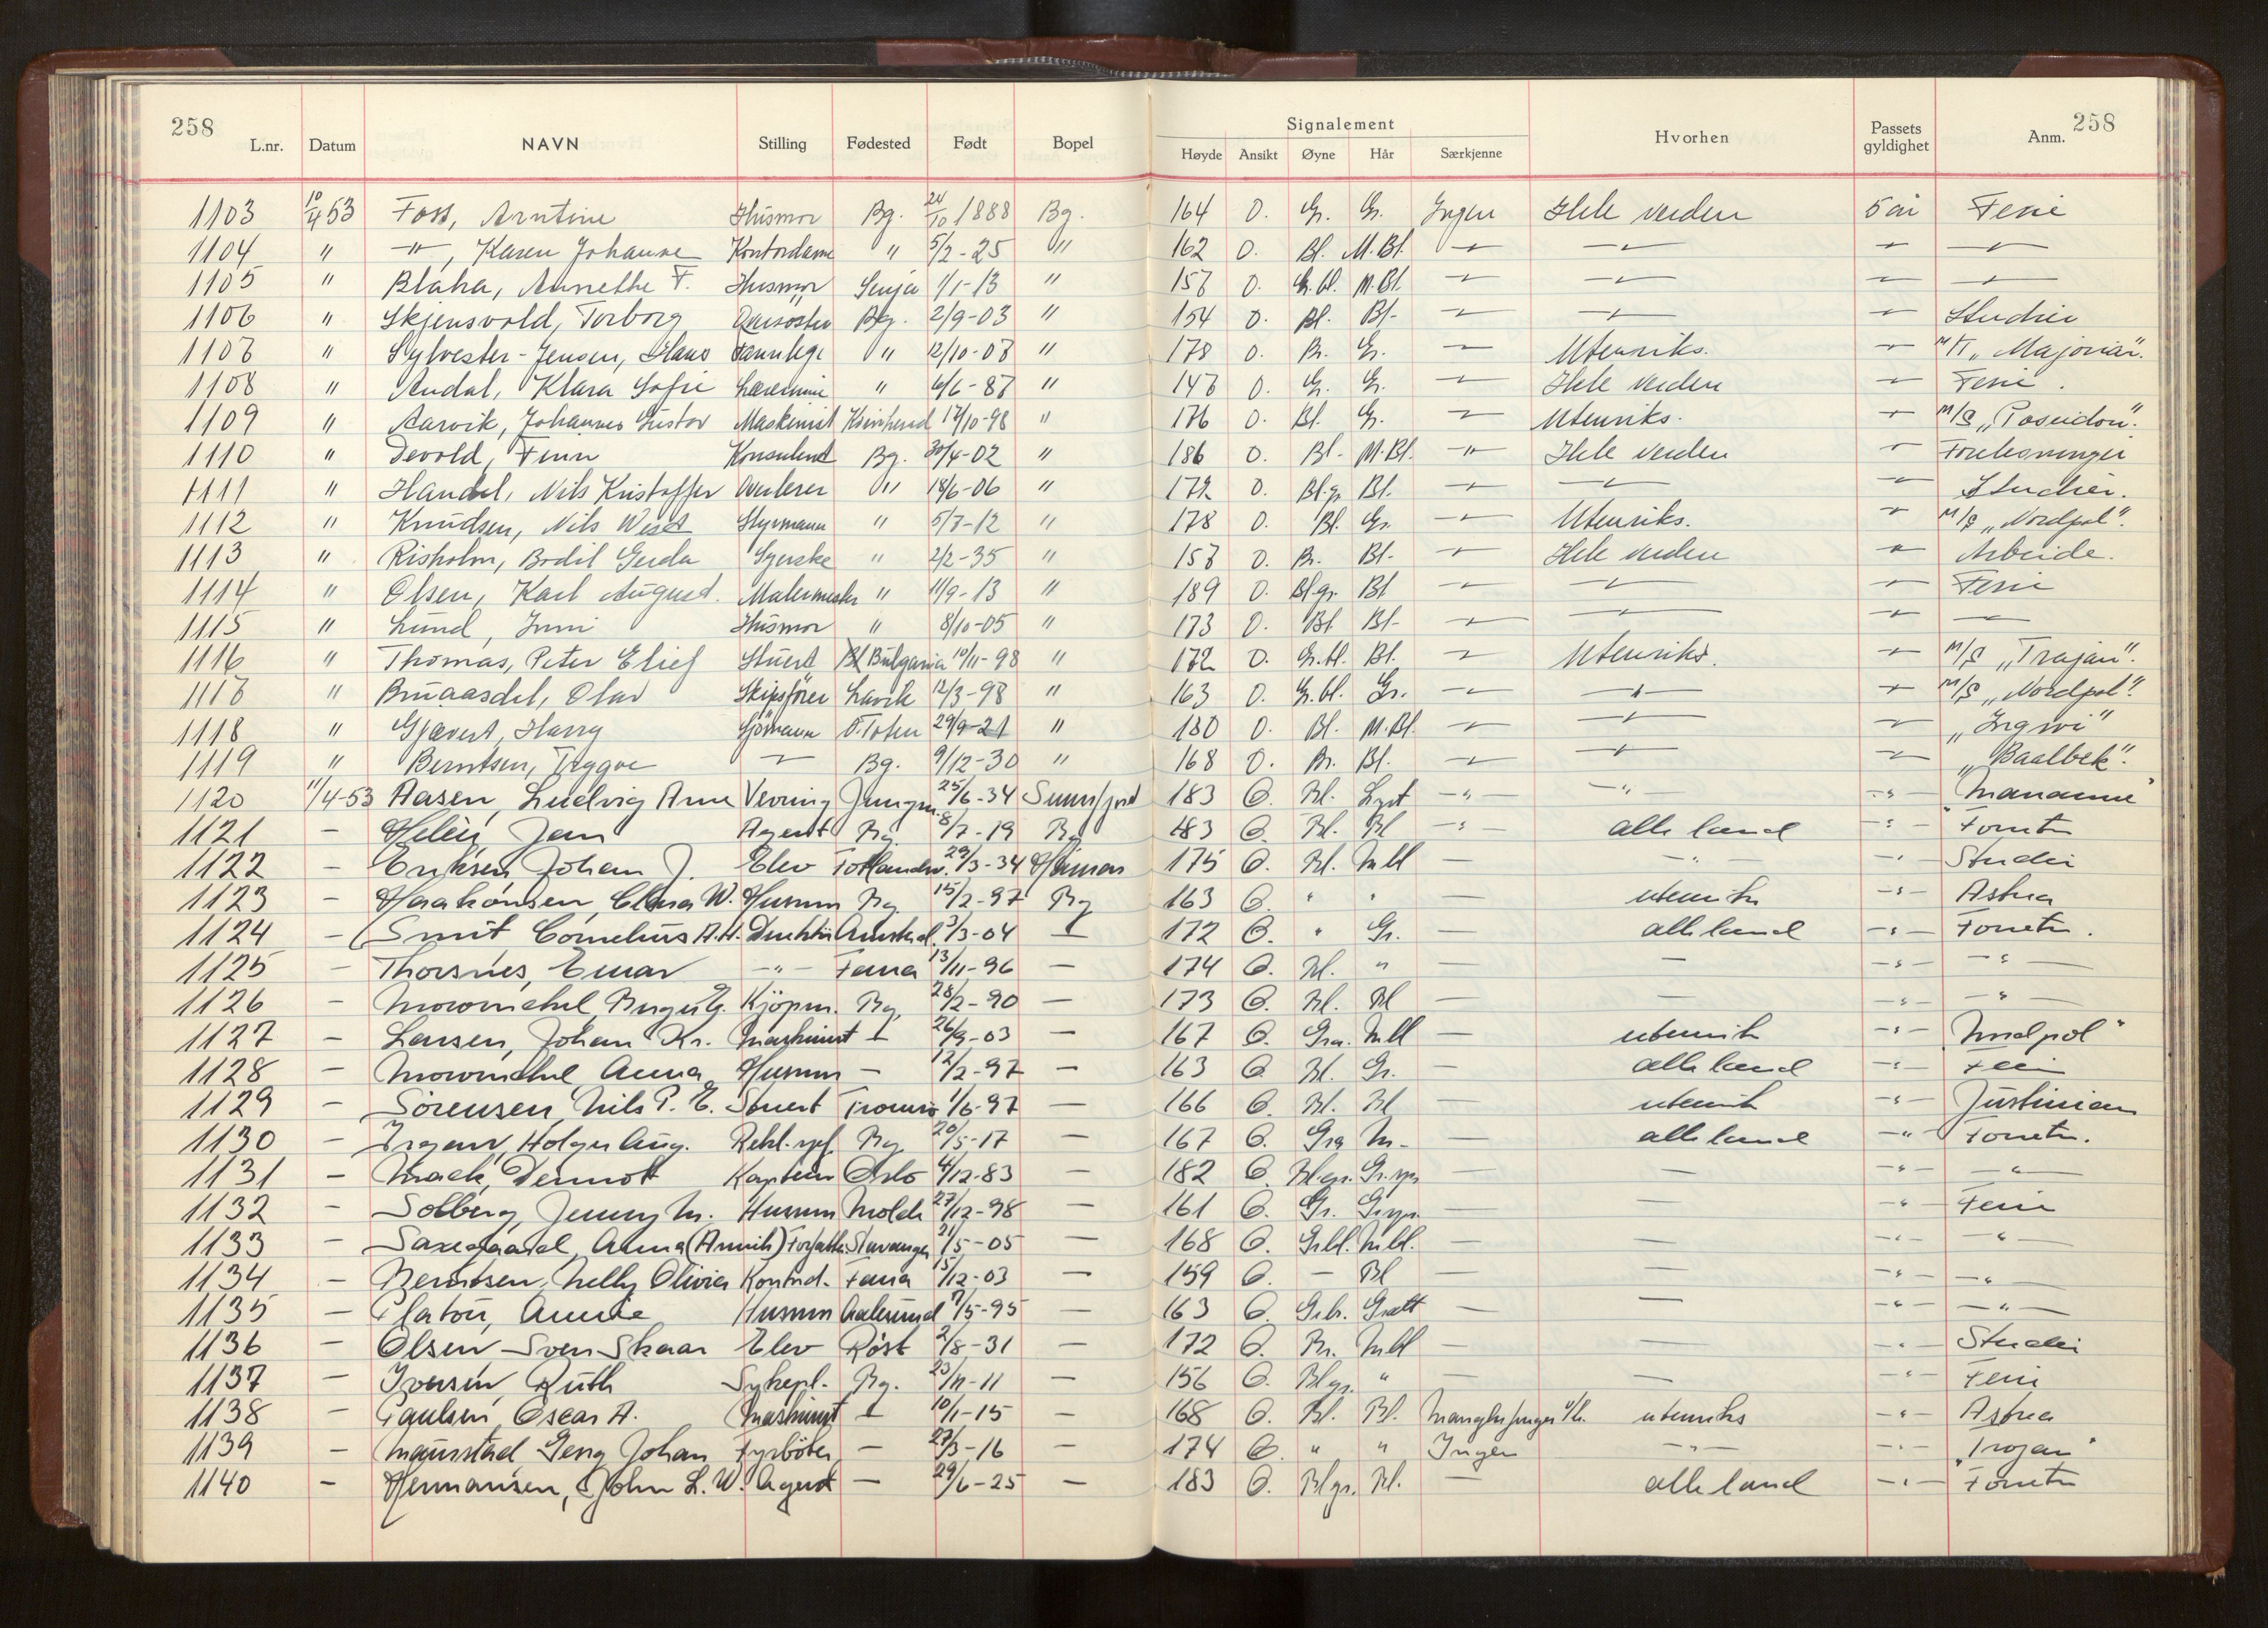 258
258
Signalement
L.nr. Datum NAVN Stilling Fødested Født Bopel Høyde Ansikt Øyne Hår Særkjenne Hvorhen Passets gyldighet Anm.
1103 10/4 53 Foss, Arntine Husmor Bg. 24/10 1888 Bg. 164 O. Gr. Gr. Ingen Hele verden 5 år Ferie
1104 " -"-, Karen Johanne Kontordame " 5/2-25 " 162 O. Bl. M.Bl. -"- -"- -"- -"-
1105 " Blaha, Annethe F. Husmor Senja 1/1-13 " 157 O. Gr.bl. M.Bl. -"- -"- -"- -"-
1106 " Skjensvold, Torborg Bg. 2/9-03 " 154 O. Bl. Bl. -"- -"- -"- Studier
1107 " Sylvester-Jensen, Hans Tannlege " 12/10-07 " 178 O. Br. Gr. -"- Utenriks. -"- M/T "Majorian".
1108 " Andal, Klara Sofie Lærerinne " 6/6-87 " 147 O. Gr. Gr. -"- Hele verden -"- Ferie.
1109 " Aarvik, Johannes Gustav Maskinist Kvinnherad 14/10-98 " 176 O. Bl. Gr. -"- Utenriks. -"- M/S "Poseidon".
1110 " Devold, Finn Konsulent Bg. 30/4-02 " 186 O. Bl. M.Bl. -"- Hele verden -"- Forretninger
1111 " Handal, Nils Kristoffer Overlærer " 18/6-06 " 172 O. Bl.gr. Bl. -"- -"- -"- Studier.
1112 " Knudsen, Nils Styrmann " 5/7-12 " 178 O. Bl. Gr. -"- Utenriks. -"- M/S "Nordpol".
1113 " Risholm, Bodil Gerda Syerske " 2/2-35 " 157 O. Br. Bl. -"- Hele verden -"- Arbeide.
1114 " Olsen, Karl August. Malermester " 11/9-13 " 189 O. Bl.gr. Bl -"- -"- -"- Ferie
1115 " Lund, Husmor " 8/10-05 " 173 O. Bl. Bl. -"- -"- -"- -"-
1116 " Thomas, Peter Elief Stuert Bulgaria 10/11-98 " 172 O. Gr.bl. Bl. -"- Utenriks. -"- M/S "Trajan".
1117 " Bruaasdal, Olav Skipsfører Lavik 12/3-98 " 163 O. Gr.bl. Gr. -"- -"- -"- M/S "Nordpol".
1118 " Gjævert, Harry Sjømann Ø.Toten 29/9-21 " 180 O. Bl. M.Bl. -"- -"- -"- "Ingwi"
1119 " Berntsen, Trygve -"- Bg. 9/12-30 " 168 O. Br. Bl. -"- -"- -"- "Baalbek".
1120 11/4-53 Aasen, Ludvig Arne 25/6-34 183 O. Bl. Lyst -"- -"- -"-
1121 - Jan Agent Bg 8/7-19 Bg 183 O. Bl. Bl -"- alle land -"- Forretn
1122 - Eriksen, Johan J. Elev 29/3-34 175 O. Bl. M bl - -"- -"- Studie
1123 - Haakonsen W. Husmor Bg 15/2-97 Bg 163 O. " " - utenriks -"- Astrea
1124 - Smit Cornelius A.H. Direktør Amsterd. 3/3-04 - 172 O. " Gr. - alle land -"- Forretn.
1125 - Thorsnes, Einar -"- Fana 13/11-96 - 174 O. Bl. " - -"- -"-
1126 - Mowinckel, Birger G. Kjøpm. Bg. 28/2-90 - 173 O. Bl. Bl - - -"- -"-
1127 - Larsen, Johan Kr. Maskinist - 26/9-03 - 167 O. Gra. M bl - utenriks -"- "Nordpol"
1128 - Mowinckel Anna Husmor - 12/2-97 - 163 O. Bl. Gr. - alle land -"- Ferie
1129 - Sörensen, Nils P. E. Stuert Tromsø 1/6-97 - 166 O. Bl. Bl - utenriks -"- Justinian
1130 - Irgens, Holger Aug. Rekl.sjef Bg 20/5-17 - 167 O. Gra M. - alle land -"- Forretn.
1131 - Mack, Dermot Kaptein Oslo 4/12-83 - 182 O. Bl.gr. Gr.spr. - - -"- -"-
1132 - Solberg, Jenny M. Husmor Molde 27/12-98 - 161 O. Gr. Gr.spr. - - -"- Ferie
1133 - Saxegaard, Anna (Annik) Forfatter Stavanger 21/5-05 - 168 O. Gr.bl. M.bl. - - -"- -"-
1134 - Berntsen, Nelly Olivia Kontord. Fana 15/12-03 - 159 O. - Bl - - -"- -"-
1135 - Platou, Husmor Aalesund 7/5-95 - 163 O. Grb. Gratt - - -"- -"-
1136 - Olsen Sven Skaar Elev Røst 2/8-31 - 172 O. Br. M bl - - -"- Studie
1137 - Iversen, Ruth Sykepl. Bg. 23/11-11 - 156 O. Blgr. " - - -"- Ferie
1138 - Paulsen, Oscar A. Maskinist - 10/1-15 - 168 O. Bl. Bl. utenriks -"- Astrea
1139 - Maurstad, Georg Johan Fyrbøter - 27/3-16 - 174 O. " " Ingen -"- -"- "Trojan"
1140 - Hermansen, John L. W. Agent - 29/6-25 - 183 O. Blgr. Bl. - alle land -"- Forretn